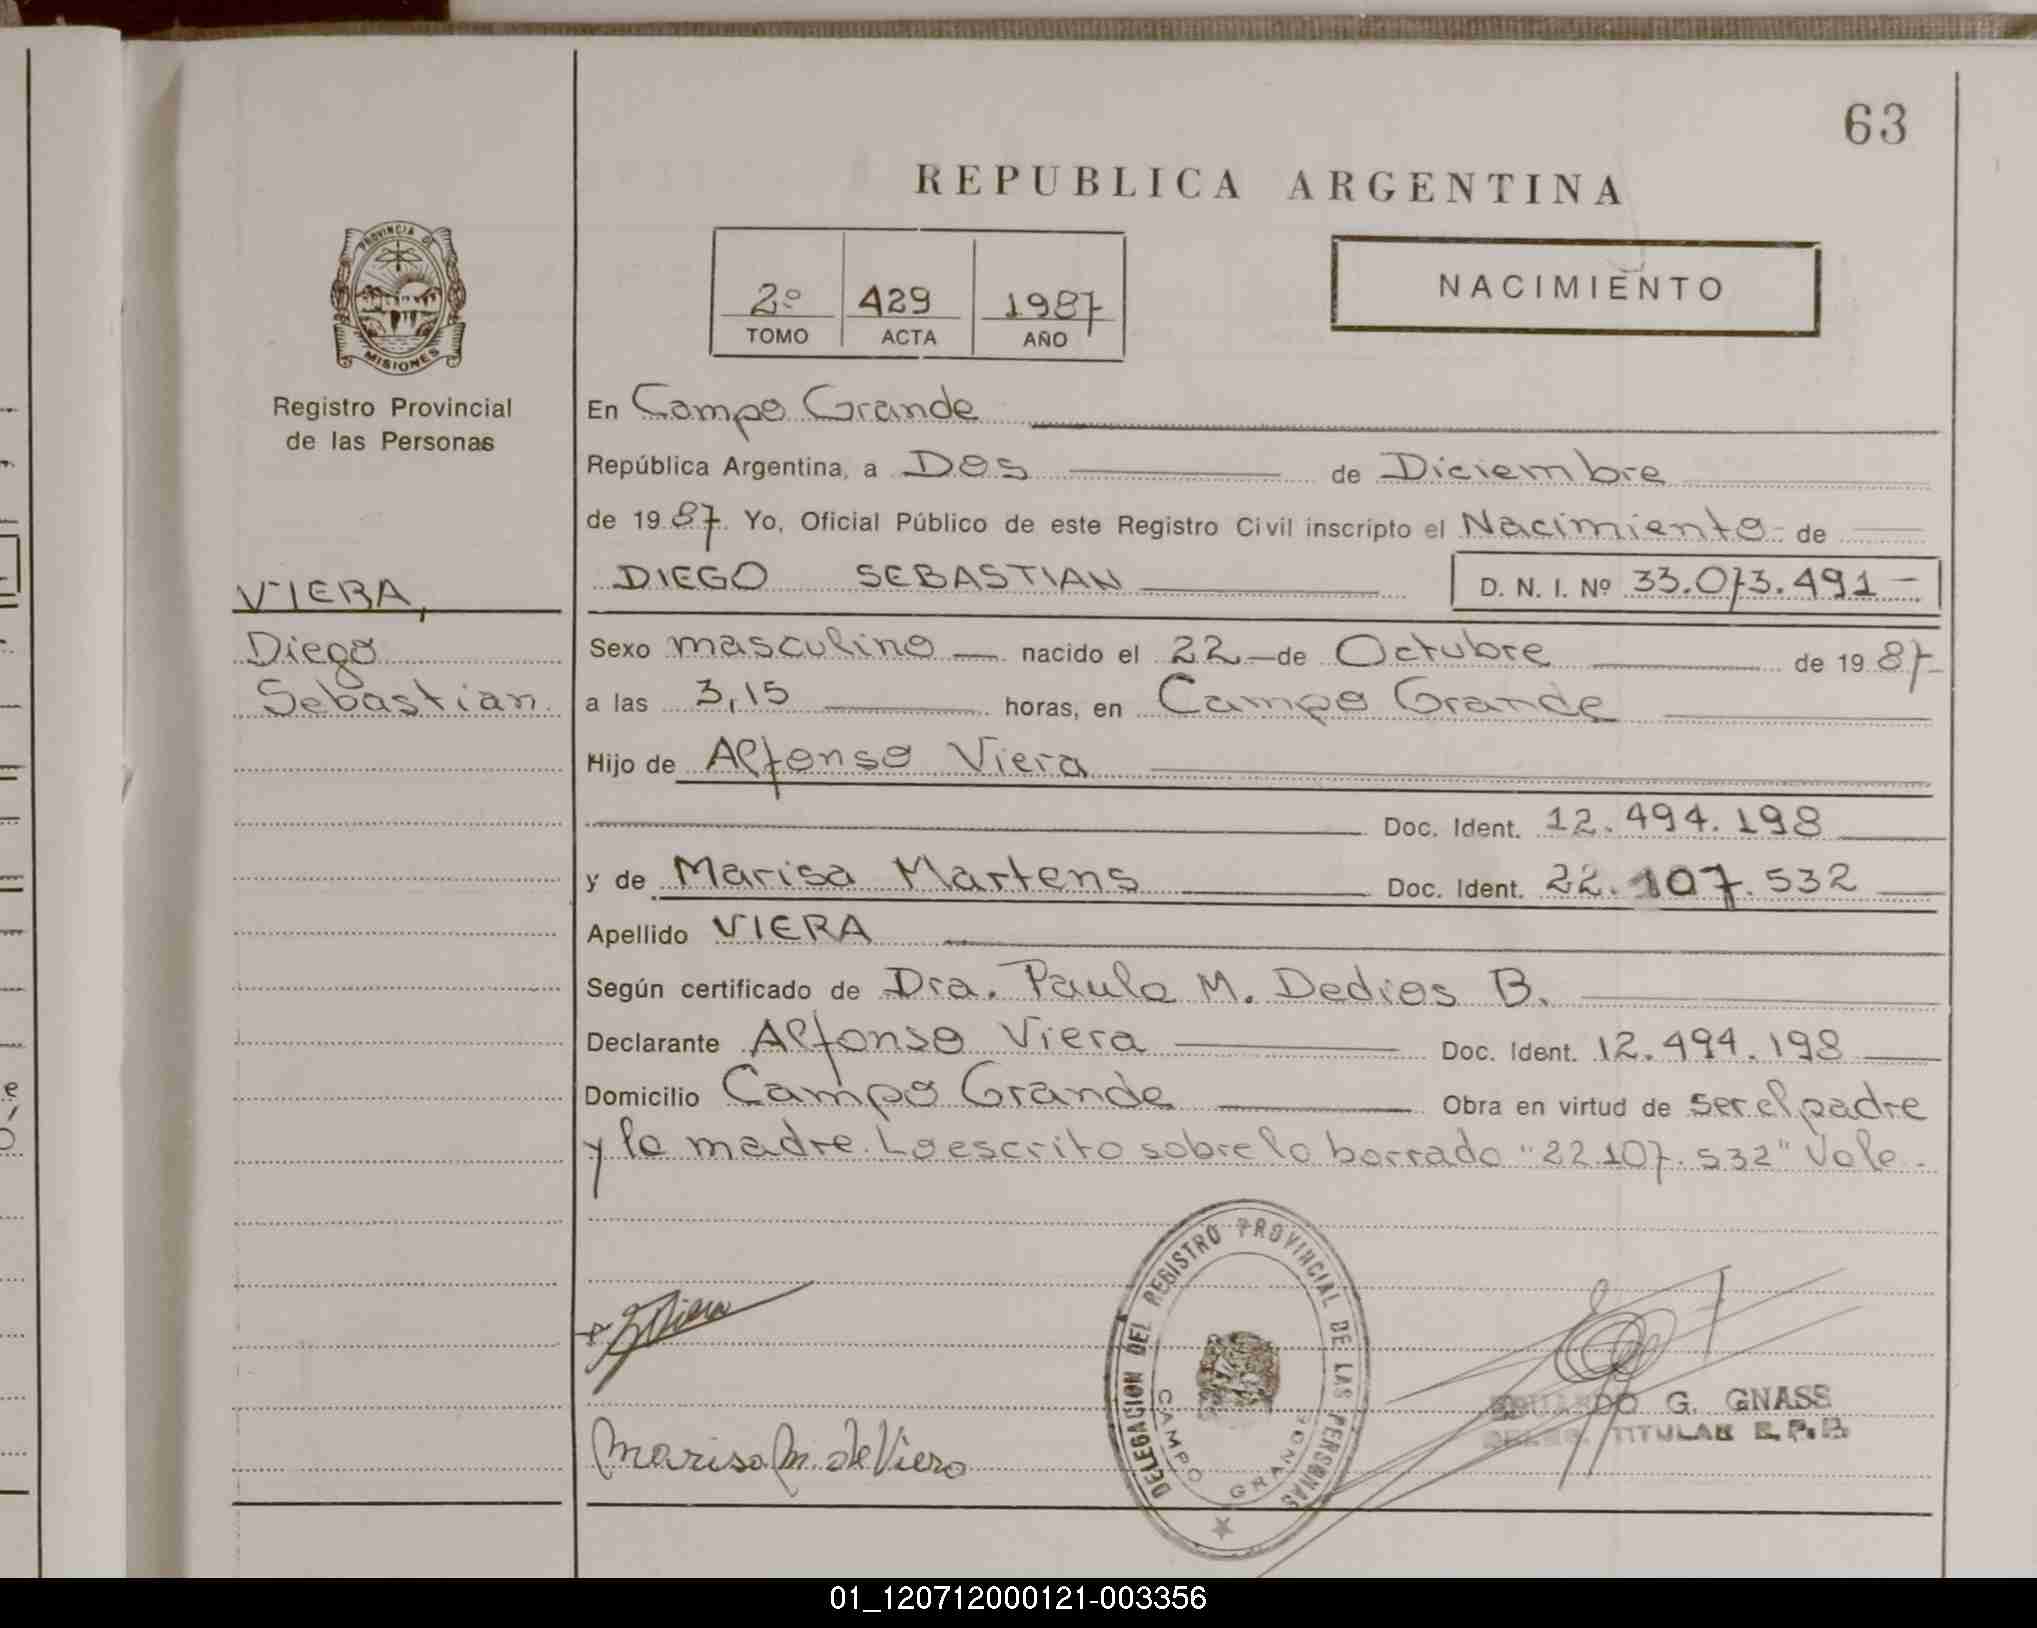 63
REPUBLICA ARGENTINA
PROVINCIA DE
MISIONES
Registro Provincial
de las Personas
2º 429 1987
TOMO ACTA AÑO
NACIMIENTO
En Campo Grande
República Argentina, a Dos de Diciembre
de 1987. Yo, Oficial Público de este Registro Civil inscripto el Nacimiento de
DIEGO SEBASTIAN D. N. I. Nº 33.073.491-
VIERA,
Diego
Sebastian.
Sexo masculino nacido el 22 de Octubre de 1987
a las 3,15 horas, en Campo Grande
Hijo de Alfonso Viera
Doc. Ident. 12.494.198
y de Marisa Martens Doc. Ident. 22.107.532
Apellido VIERA
Según certificado de Dra. Paula M. Dedios B.
Declarante Alfonso Viera Doc. Ident. 12.494.198
Domicilio Campo Grande Obra en virtud de ser el padre
y la madre. Lo escrito sobre lo borrado "22.107.532" Vale.
DELEGACION DEL REGISTRO PROVINCIAL DE LAS PERSONAS
CAMPO GRANDE
Viera
Marisa M. de Viera
EDUARDO G. GNASS
TITULAR R.P.P.
01_120712000121-003356